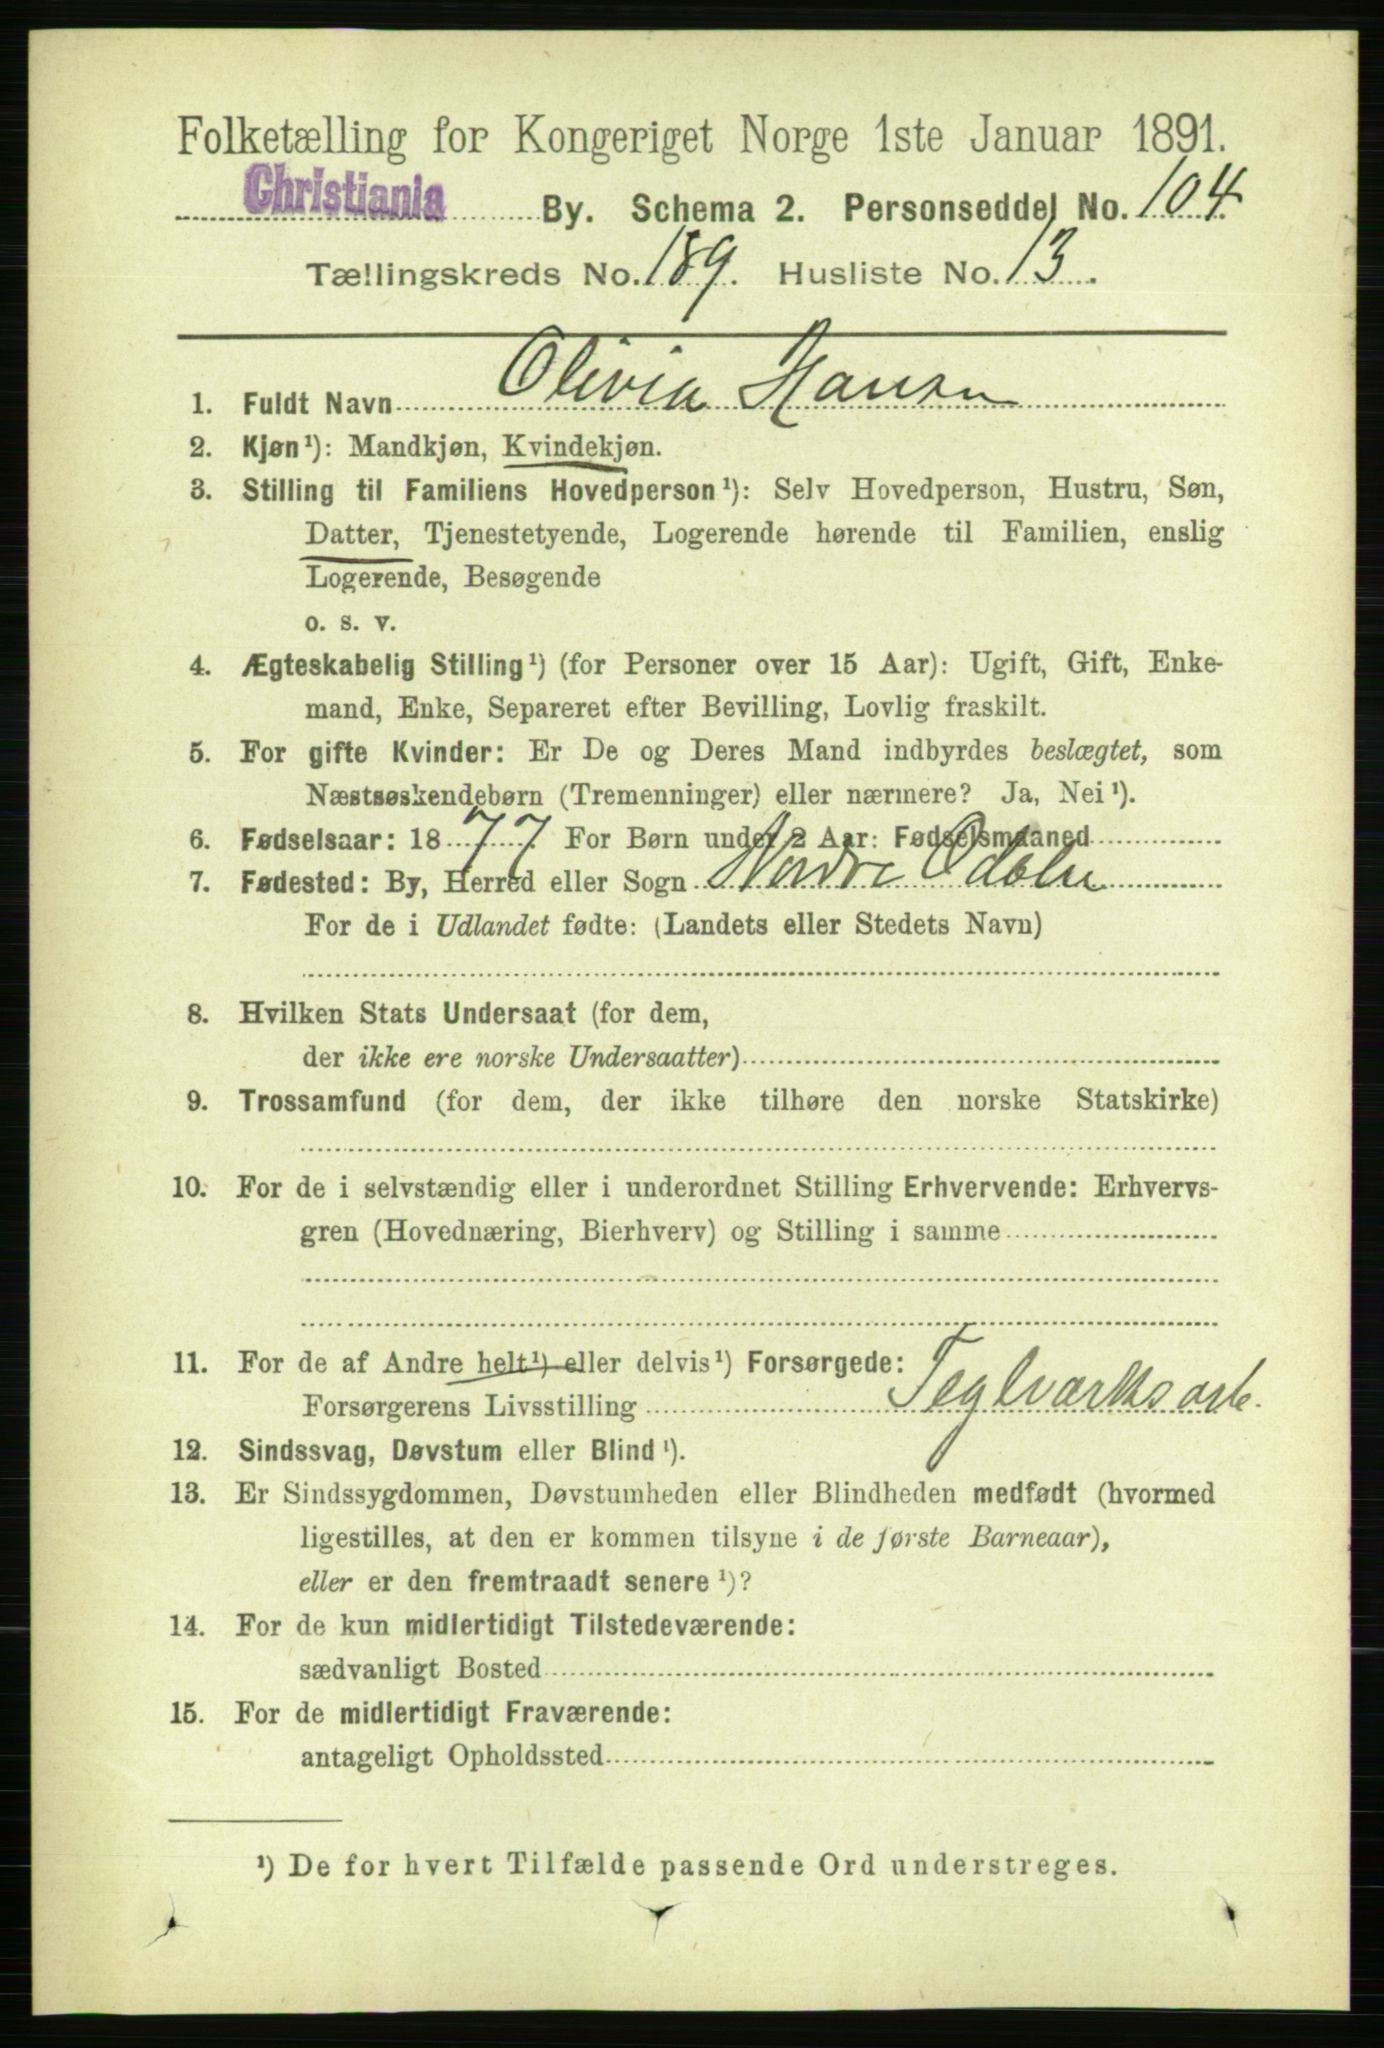 Folketælling for Kongeriget Norge 1ste Januar 1891.
Christiania By. Schema 2. Personseddel No. 104
Tællingskreds No. 189. Husliste No. 13.
1. Fuldt Navn Olivia Hansen
2. Kjøn¹): Mandkjøn, Kvindekjøn.
3. Stilling til Familiens Hovedperson¹): Selv Hovedperson, Hustru, Søn,
Datter, Tjenestetyende, Logerende hørende til Familien, enslig
Logerende, Besøgende
o. s. v.
4. Ægteskabelig Stilling¹) (for Personer over 15 Aar): Ugift, Gift, Enke-
mand, Enke, Separeret efter Bevilling, Lovlig fraskilt.
5. For gifte Kvinder: Er De og Deres Mand indbyrdes beslægtet, som
Næstsøskendebørn (Tremenninger) eller nærmere? Ja, Nei¹).
6. Fødselsaar: 1877 For Børn under 2 Aar: Fødselsmaaned
7. Fødested: By, Herred eller Sogn Nordre Odalen
For de i Udlandet fødte: (Landets eller Stedets Navn)
8. Hvilken Stats Undersaat (for dem,
der ikke ere norske Undersaatter)
9. Trossamfund (for dem, der ikke tilhøre den norske Statskirke)
10. For de i selvstændig eller i underordnet Stilling Erhvervende: Erhvervs-
gren (Hovednæring, Bierhverv) og Stilling i samme
11. For de af Andre helt¹) eller delvis¹) Forsørgede:
Forsørgerens Livsstilling Teglværksarb.
12. Sindssvag, Døvstum eller Blind¹).
13. Er Sindssygdommen, Døvstumheden eller Blindheden medfødt (hvormed
ligestilles, at den er kommen tilsyne i de første Barneaar),
eller er den fremtraadt senere¹)?
14. For de kun midlertidigt Tilstedeværende:
sædvanligt Bosted
15. For de midlertidigt Fraværende:
antageligt Opholdssted
¹) De for hvert Tilfælde passende Ord understreges.